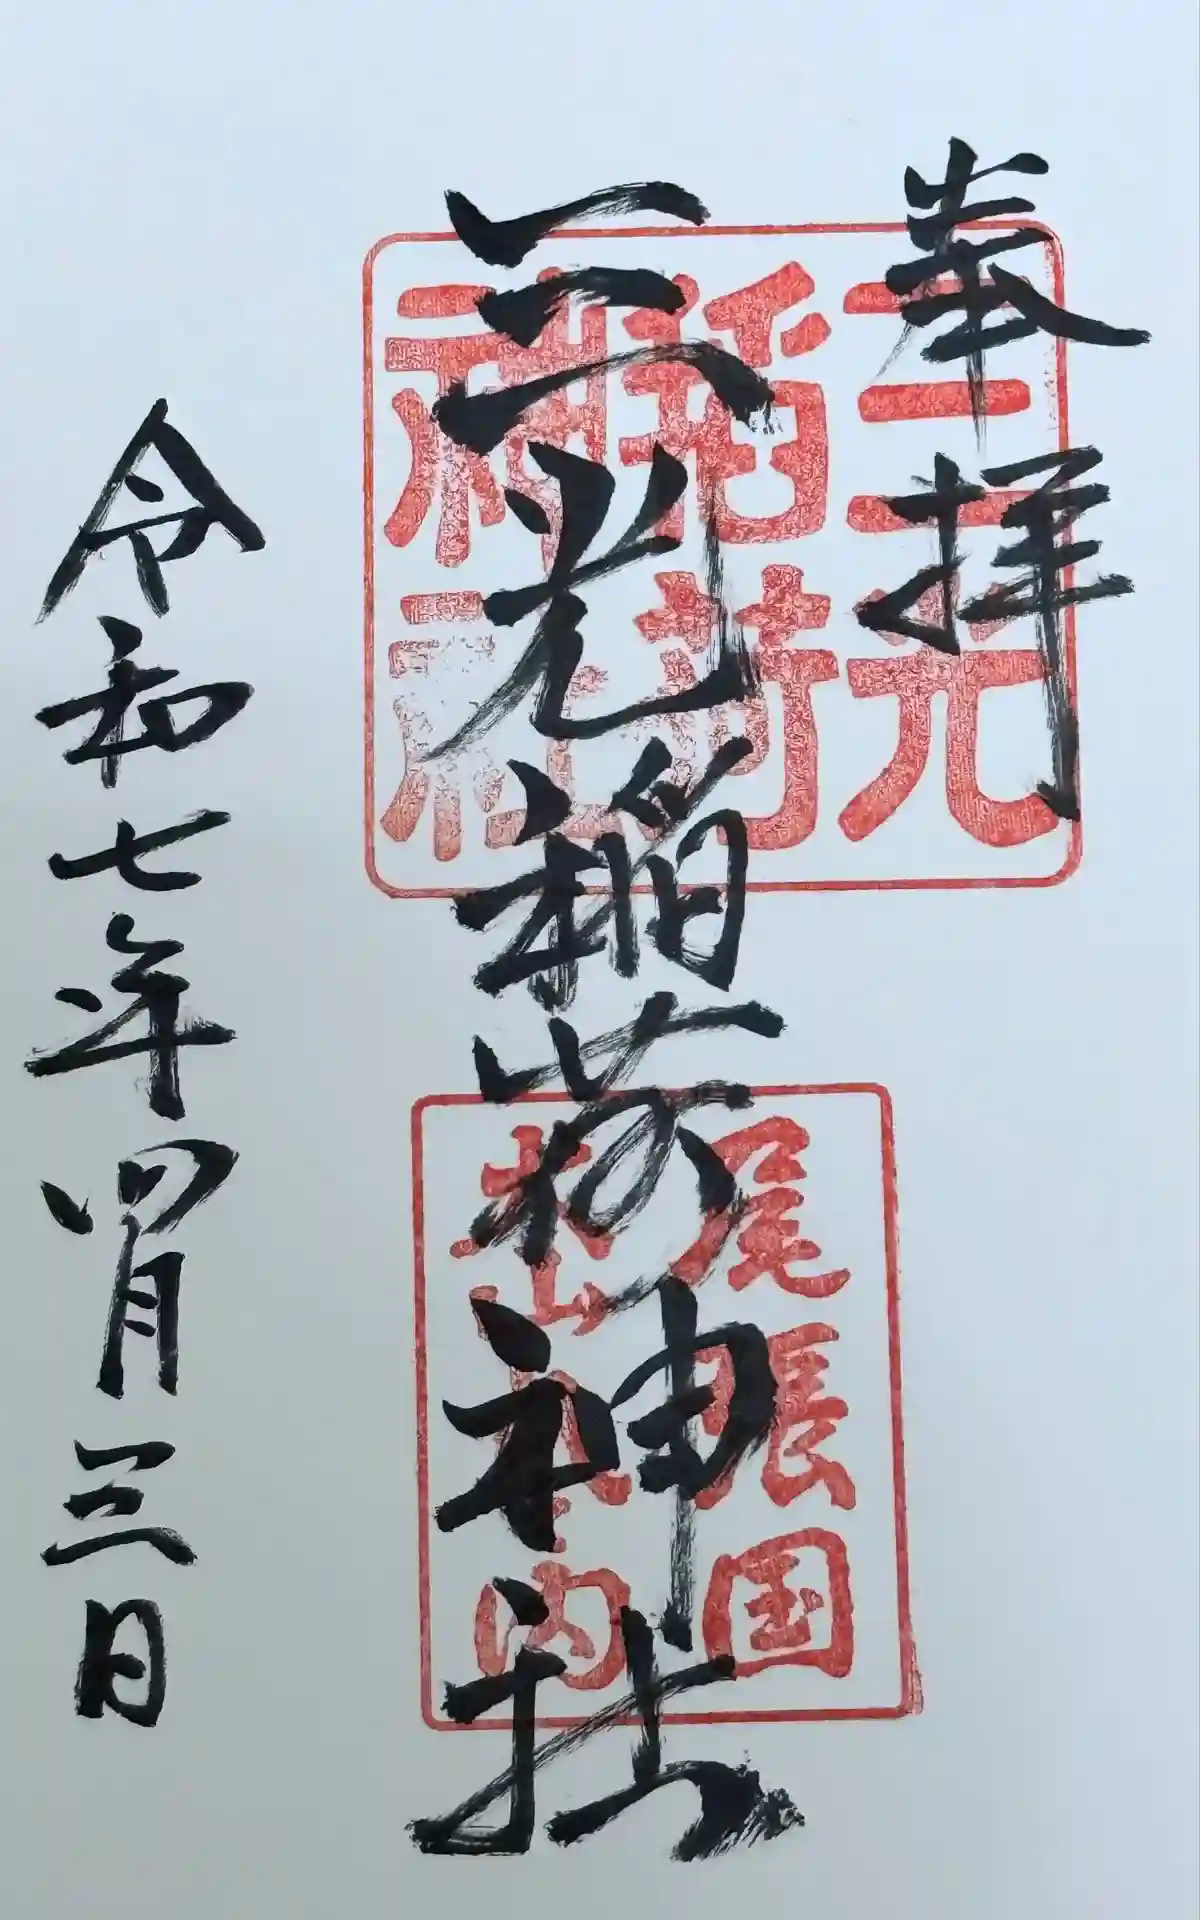 奉拝
三光稲荷神社
三光
稲荷
神社
尾張国
犬山
内
令和七年四月三日